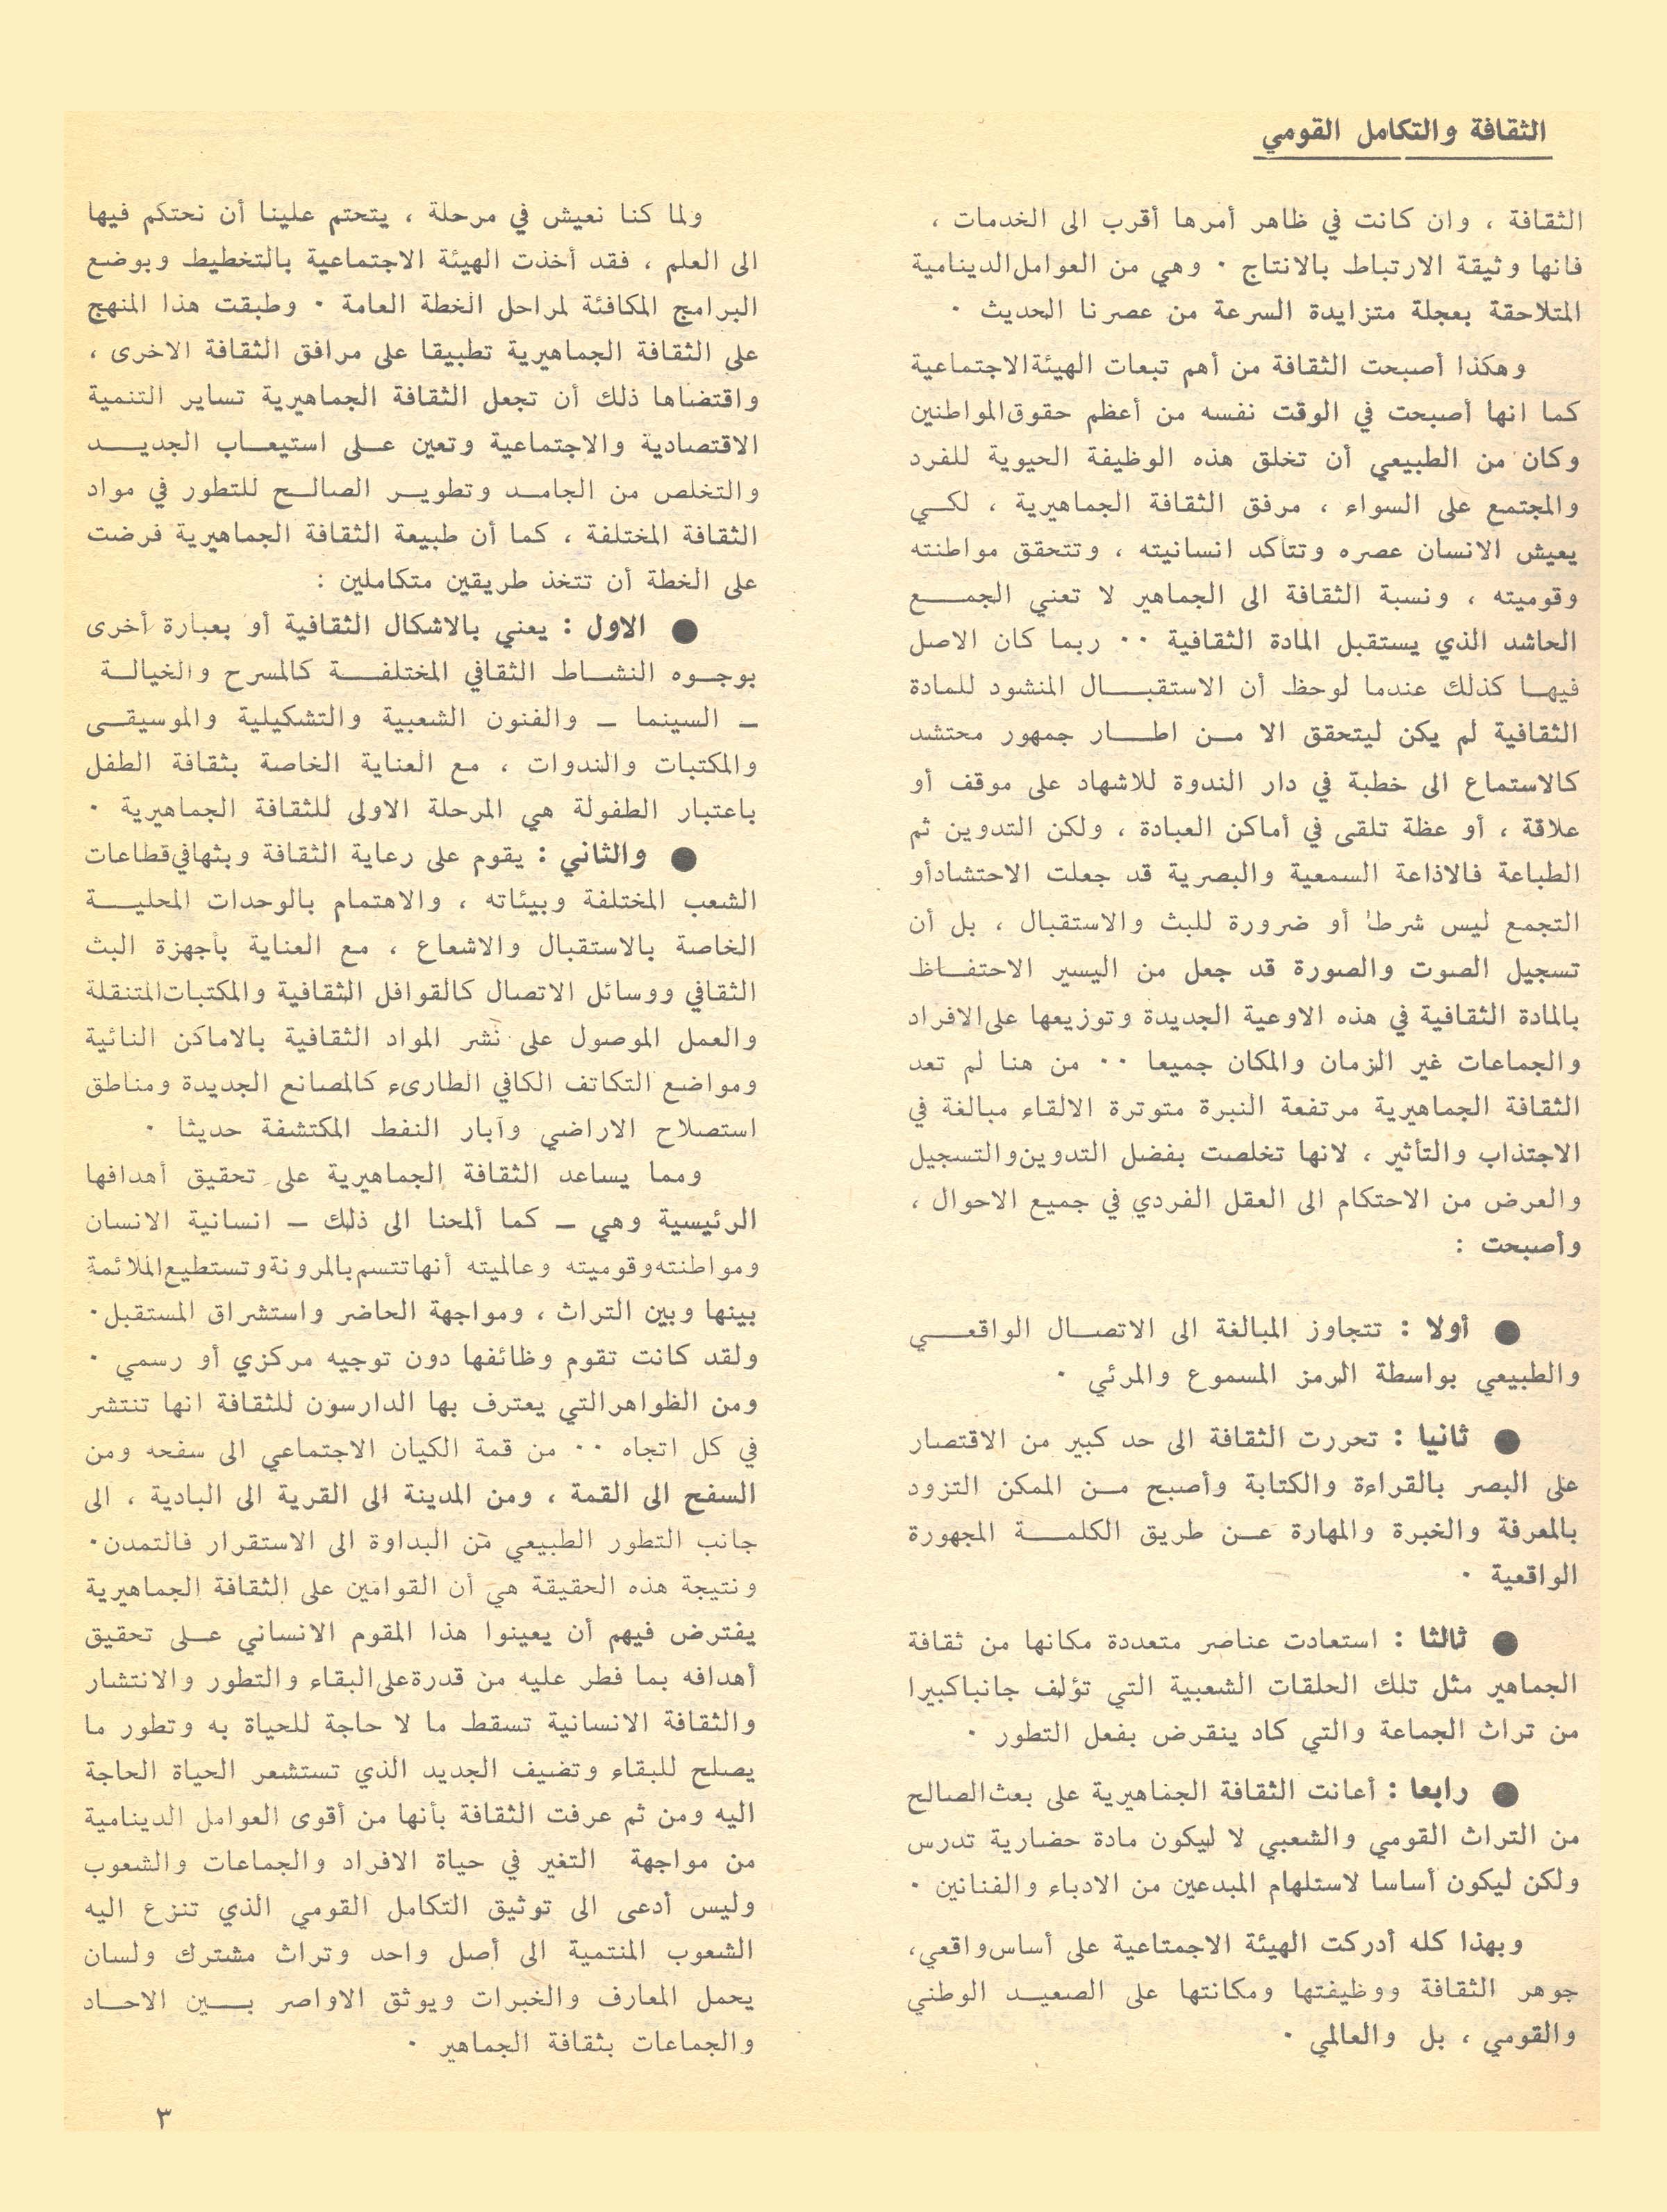 الثقافة والتكامل القومي
الثقافة ، وان كانت في ظاهر أمرها أقرب الى الخدمات ،
فانها وثيقة الارتباط بالانتاج · وهي من العوامل الدينامية
المتلاحقة بعجلة متزايدة السرعة من عصرنا الحديث ·
وهكذا أصبحت الثقافة من أهم تبعات الهيئة الاجتماعية
كما انها أصبحت في الوقت نفسه من أعظم حقوق المواطنين
وكان من الطبيعي أن تخلق هذه الوظيفة الحيوية للفرد
والمجتمع على السواء ، مرفق الثقافة الجماهيرية ، لكي
يعيش الانسان عصره وتتأكد انسانيته ، وتتحقق مواطنته
وقوميته ، ونسبة الثقافة الى الجماهير لا تعني الجمع
الحاشد الذي يستقبل المادة الثقافية ·· ربما كان الاصل
فيها كذلك عندما لوحظ أن الاستقبال المنشود للمادة
الثقافية لم يكن ليتحقق الا من اطار جمهور محتشد
كالاستماع الى خطبة في دار الندوة للاشهاد على موقف أو
علاقة ، أو عظة تلقى في أماكن العبادة ، ولكن التدوين ثم
الطباعة فالاذاعة السمعية والبصرية قد جعلت الاحتشاد أو
التجمع ليس شرطا أو ضرورة للبث والاستقبال ، بل أن
تسجيل الصوت والصورة قد جعل من اليسير الاحتفاظ
بالمادة الثقافية في هذه الاوعية الجديدة وتوزيعها على الافراد
والجماعات غير الزمان والمكان جميعا ·· من هنا لم تعد
الثقافة الجماهيرية مرتفعة النبرة متوترة الالقاء مبالغة في
الاجتذاب والتأثير ، لانها تخلصت بفضل التدوين والتسجيل
والعرض من الاحتكام الى العقل الفردي في جميع الاحوال ،
وأصبحت :
● أولا : تتجاوز المبالغة الى الاتصال الواقعي
والطبيعي بواسطة الرمز المسموع والمرئي ·
● ثانيا : تحررت الثقافة الى حد كبير من الاقتصار
على البصر بالقراءة والكتابة وأصبح من الممكن التزود
بالمعرفة والخبرة والمهارة عن طريق الكلمة المجهورة
الواقعية ·
● ثالثا : استعادت عناصر متعددة مكانها من ثقافة
الجماهير مثل تلك الحلقات الشعبية التي تؤلف جانبا كبيرا
من تراث الجماعة والتي كاد ينقرض بفعل التطور ·
● رابعا : أعانت الثقافة الجماهيرية على بعث الصالح
من التراث القومي والشعبي لا ليكون مادة حضارية تدرس
ولكن ليكون أساسا لاستلهام المبدعين من الادباء والفنانين ·
وبهذا كله أدركت الهيئة الاجمتاعية على أساس واقعي،
جوهر الثقافة ووظيفتها ومكانتها على الصعيد الوطني
والقومي ، بل والعالمي ·
ولما كنا نعيش في مرحلة ، يتحتم علينا أن نحتكم فيها
الى العلم ، فقد أخذت الهيئة الاجتماعية بالتخطيط وبوضع
البرامج المكافئة لمراحل الخطة العامة · وطبقت هذا المنهج
على الثقافة الجماهيرية تطبيقا على مرافق الثقافة الاخرى ،
واقتضاها ذلك أن تجعل الثقافة الجماهيرية تساير التنمية
الاقتصادية والاجتماعية وتعين على استيعاب الجديد
والتخلص من الجامد وتطوير الصالح للتطور في مواد
الثقافة المختلفة ، كما أن طبيعة الثقافة الجماهيرية فرضت
على الخطة أن تتخذ طريقين متكاملين :
● الاول : يعني بالاشكال الثقافية أو بعبارة أخرى
بوجوه النشاط الثقافي المختلفة كالمسرح والخيالة
– السينما – والفنون الشعبية والتشكيلية والموسيقى
والمكتبات والندوات ، مع العناية الخاصة بثقافة الطفل
باعتبار الطفولة هي المرحلة الاولى للثقافة الجماهيرية ·
● والثاني : يقوم على رعاية الثقافة وبثها في قطاعات
الشعب المختلفة وبيئاته ، والاهتمام بالوحدات المحلية
الخاصة بالاستقبال والاشعاع ، مع العناية بأجهزة البث
الثقافي ووسائل الاتصال كالقوافل الثقافية والمكتبات المتنقلة
والعمل الموصول على نشر المواد الثقافية بالاماكن النائية
ومواضع التكاتف الكافي الطارىء كالمصانع الجديدة ومناطق
استصلاح الاراضي وآبار النفط المكتشفة حديثا ·
ومما يساعد الثقافة الجماهيرية على تحقيق أهدافها
الرئيسية وهي – كما ألمحنا الى ذلك – انسانية الانسان
ومواطنته وقوميته وعالميته أنها تتسم بالمرونة وتستطيع الملائمة
بينها وبين التراث ، ومواجهة الحاضر واستشراق المستقبل·
ولقد كانت تقوم وظائفها دون توجيه مركزي أو رسمي ·
ومن الظواهر التي يعترف بها الدارسون للثقافة انها تنتشر
في كل اتجاه ·· من قمة الكيان الاجتماعي الى سفحه ومن
السفح الى القمة ، ومن المدينة الى القرية الى البادية ، الى
جانب التطور الطبيعي من البداوة الى الاستقرار فالتمدن·
ونتيجة هذه الحقيقة هي أن القوامين على الثقافة الجماهيرية
يفترض فيهم أن يعينوا هذا المقوم الانساني على تحقيق
أهدافه بما فطر عليه من قدرة على البقاء والتطور والانتشار
والثقافة الانسانية تسقط ما لا حاجة للحياة به وتطور ما
يصلح للبقاء وتضيف الجديد الذي تستشعر الحياة الحاجة
اليه ومن ثم عرفت الثقافة بأنها من أقوى العوامل الدينامية
من مواجهة التغير في حياة الافراد والجماعات والشعوب
وليس أدعى الى توثيق التكامل القومي الذي تنزع اليه
الشعوب المنتمية الى أصل واحد وتراث مشترك ولسان
يحمل المعارف والخبرات ويوثق الاواصر بين الاحاد
والجماعات بثقافة الجماهير ·
٣